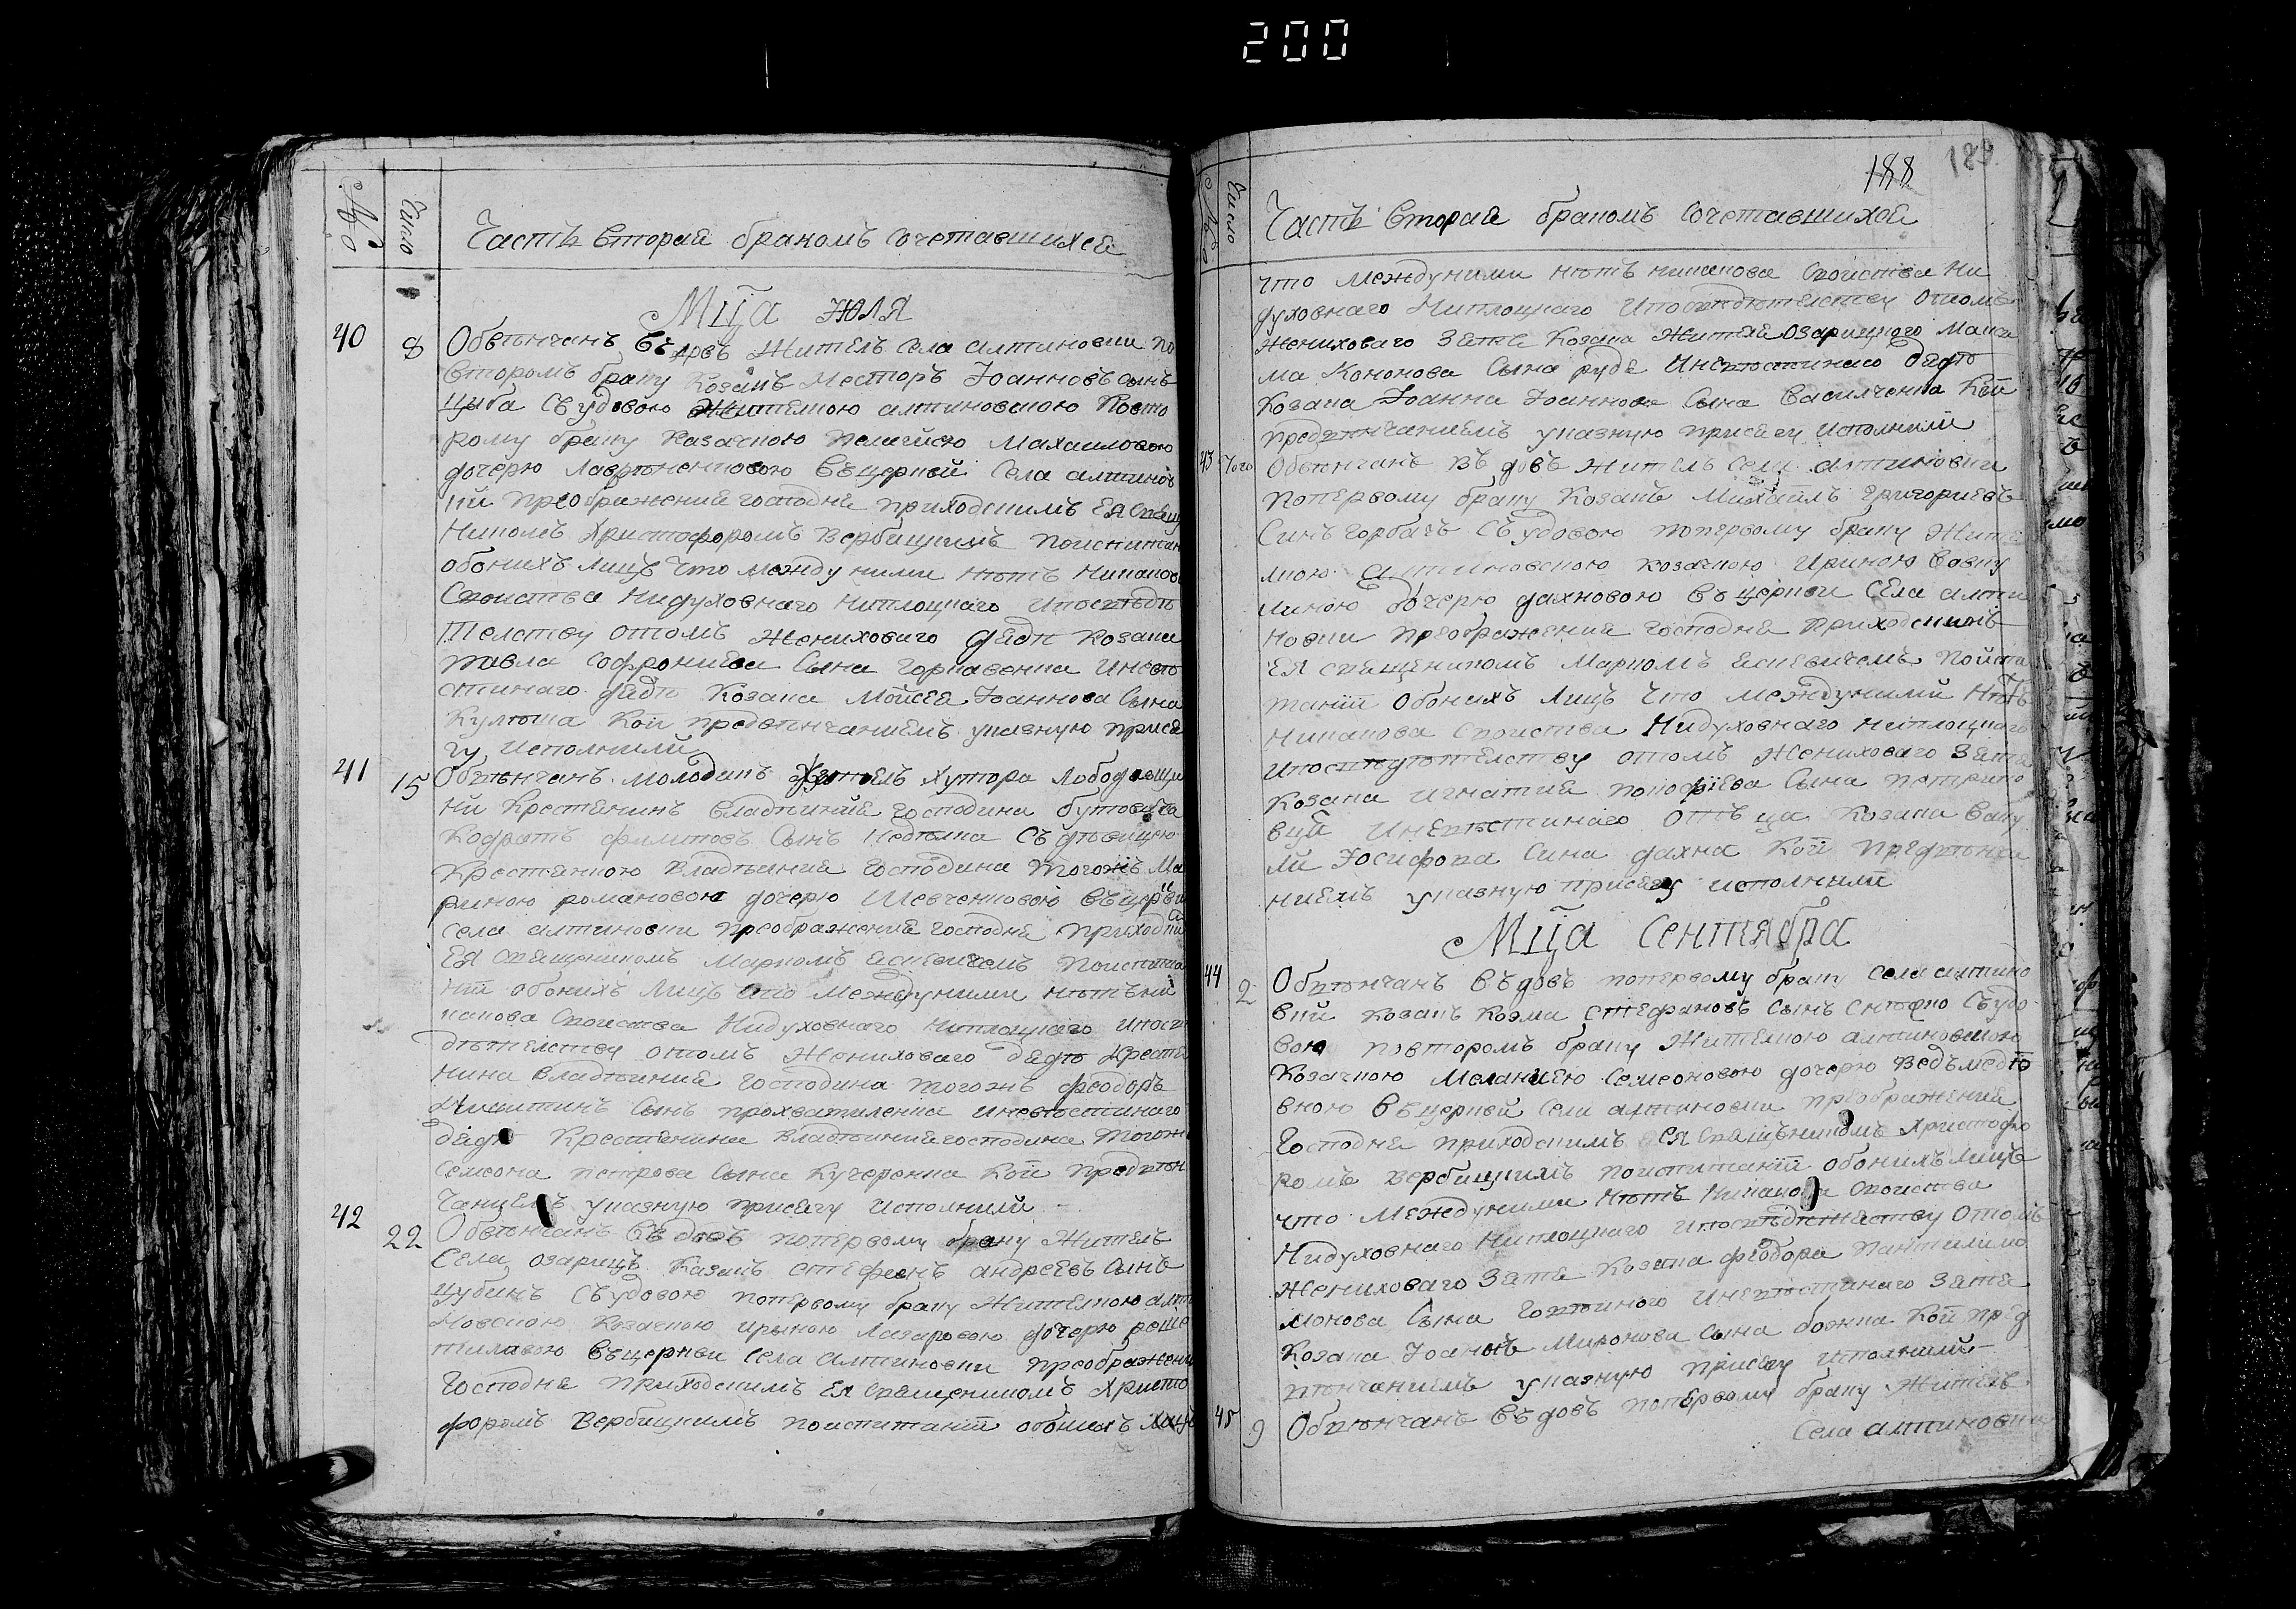 200
№
Число
Часть вторая бракомъ сочетавшихся
Мца Юля
40 8 Обвѣнчанъ въдовъ житель села алтиновки по
второмъ браку козакъ Несторъ Іоанновъ сынъ
Циба съ удовою жителкою алтиновскою повто
рому браку казачкою Пелагіею Махаиловою
дочерю Лаврѣненковою въ церквй села алтинов
кй преображения господня приходскимъ ея свящ
Никомъ Христофоромъ Вербицкимъ поиспитан
обоихъ лицъ что между ними нѣтъ никаков
Своиства нидуховнаго ниплоцкаго ипосвѣдѣ
телству отомъ жениховаго дядѣ козака
павла софрониева сына горкавенка иневѣ
стинаго дядѣ козака Мойсея Іоаннова сына
Кулѣша кой предвѣнчаниемъ указную прися
гу исполнили
41 15 Обвѣнчанъ молодикъ житель хутора Лободовщи
ни крестянинъ владѣния господина бутовича
Кодратъ филиповъ сынъ Недѣлка съ дѣвицею
крестянкою владѣния господина тогожъ Ма
риною романовою дочерю Шевченковою въ церкви
села алтиновки преображения господня приходски
ея священикомъ Маркомъ поиспита
нй обоихъ лицъ что междуними нѣтъ ни
какова своиства нидуховнаго ниплоцкаго ипосв
дѣтелству отомъ жениховаго дядѣ крестя
нина владѣния господина тогожъ феодоръ
Никитинъ сынъ прохватиленка иневѣстинаго
дядѣ крестянина владѣния господина тогож
Семеона петрова сына кучеренка кой предвѣн
чаниемъ указную присягу исполнили
42 22 Обвѣнчанъ въдовъ поперво­му браку житель
села озарицъ казакъ стефанъ андреевъ сынъ
Цубинъ съ удовою поперво­му браку жителкою алти
новскою козачкою ириною Лазаровою дочерю реше
тиловою въ церкви села алтиновки преображени
господня приходскимъ ея священикомъ Христо
форомъ Вербицкимъ поиспитанй обоихъ лицъ
188 189
№
Число
Часть вторая бракомъ сочетавшихся
что междуними нѣтъ никакова своиства ни
духовнаго ниплоцкаго ипосвѣдѣтелству отомъ
жениховаго зятя козака жителя озарицкого Макси
ма Кононова сына руда иневѣстинаго дядѣ
козака Іоанна Іоаннова сына Василченка кой
предвѣнчаниемъ указную присягу исполнили
43 Того Обвѣнчанъ въдовъ житель села алтиновки
поперво­му браку козакъ Михаилъ григориевъ
синъ горбачъ съ удовою поперво­му браку жите
лкою алтиновскою козачкою Ириною вавку
линою дочерю дахновою въ церкви села алти
новки преображения господня приходскимъ
ея священикомъ Маркомъ поиспи
танй обоихъ лицъ что междуними нѣтъ
никакова своиства нидуховнаго ниплоцкаго
ипосвѣдѣтелству отомъ жениховаго зятя
козака игнатия сына петрико
вця иневѣстинаго отъца козака ваку
ли Іосифова сина дахна кой предвѣнча
ниемъ указную присягу исполнили
Мца Сентября
44 2 Обвѣнчанъ въдовъ поперво­му браку села алтино
вки козакъ козма стефановъ сынъ съ удо
вою повторомъ браку жителкою алтиновскою
козачкою Меланиею Семеоновою дочерю ведъмедѣ
вною въ церквй села алтиновки преображения
господня приходскимъ ея священикомъ Христофо
ромъ Вербицкимъ поиспитанй обоихъ лицъ
что междуними нѣтъ никакова своиства
нидуховнаго ниплоцкаго ипосвѣдѣтелству отомъ
жениховаго зятя козака феодора пантилимо
монова сына иневѣстинаго зятя
козака Іоаннъ Миронова сына божка кой пред
вѣнчаниемъ указную присягу исполнили
45 9 Обвѣнчанъ въдовъ поперво­му браку житель
села алтиновки